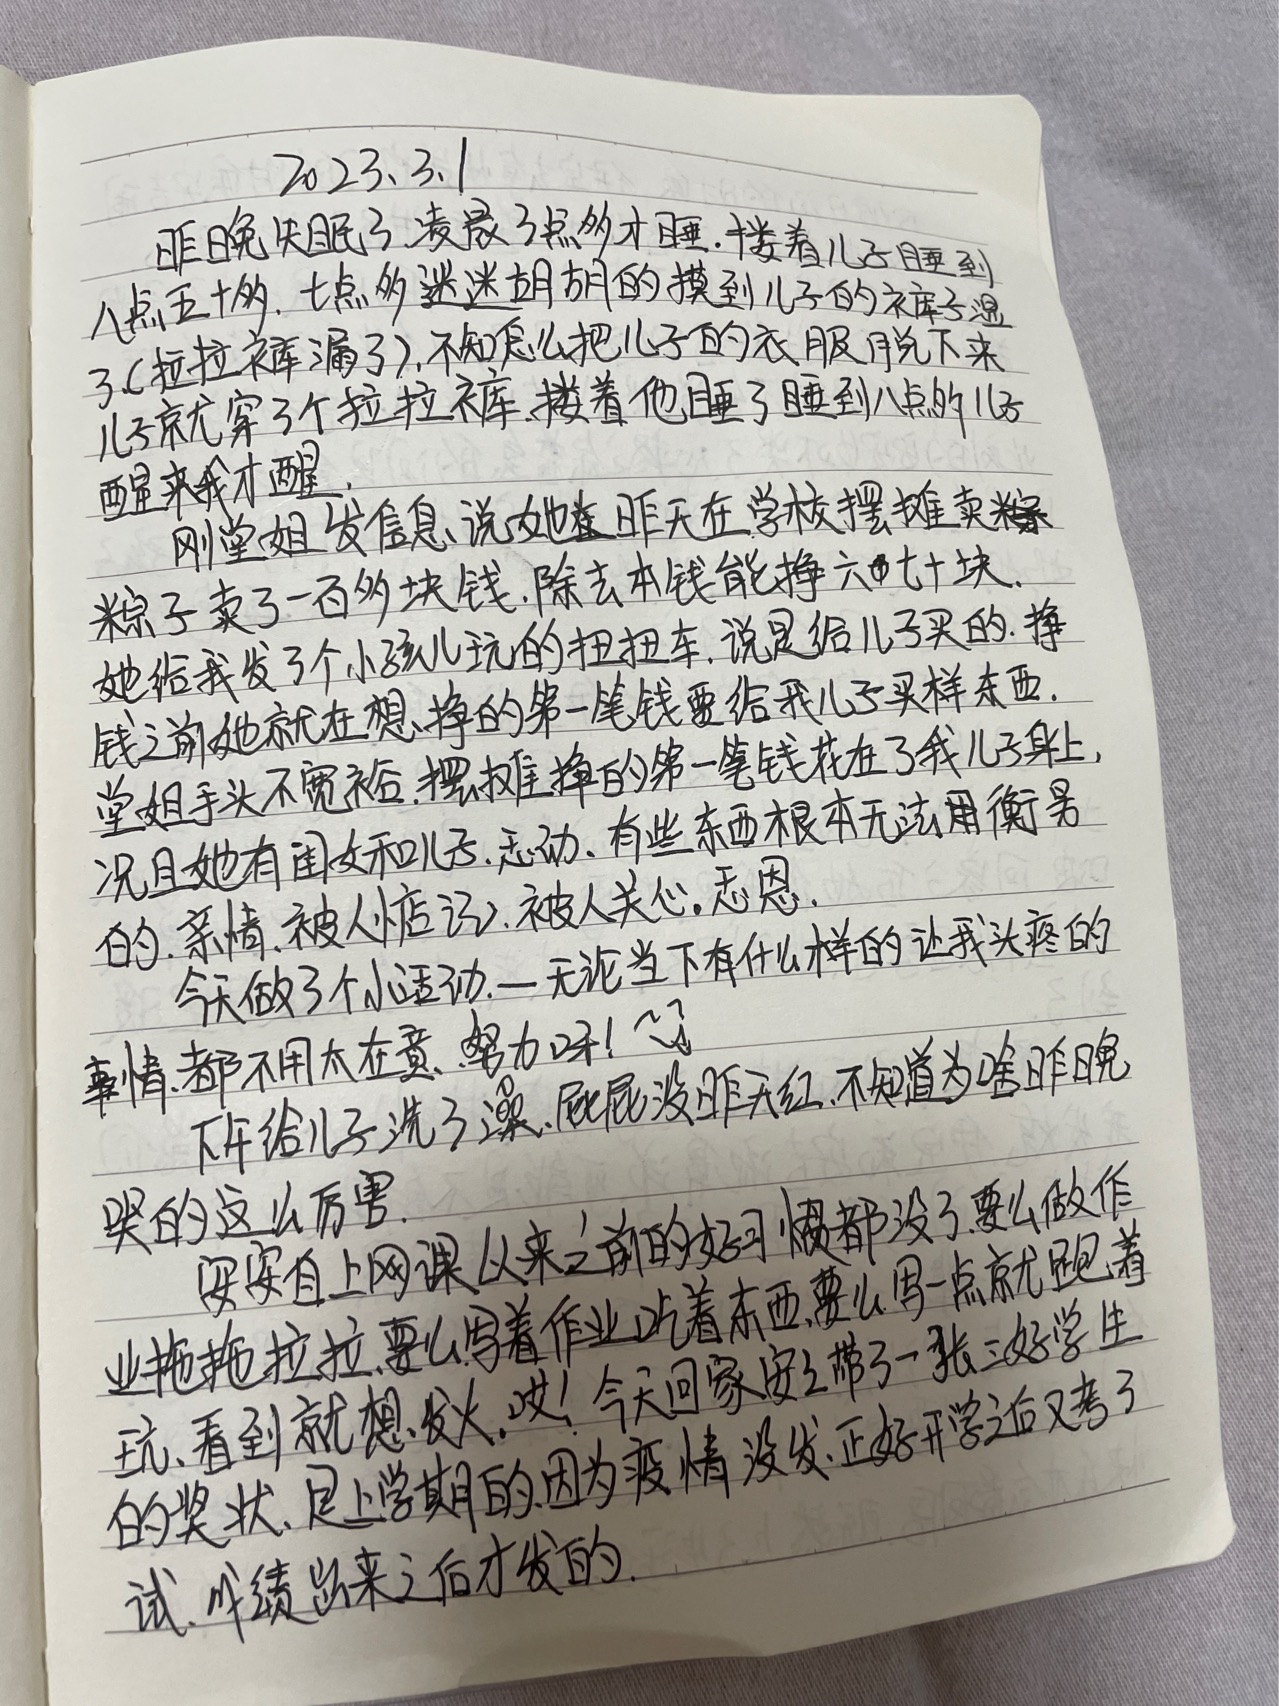 2023、3、1
昨晚失眠了、凌晨3点多才睡、搂着儿子睡到
八点五十多、七点多迷迷胡胡的摸到儿子的裤子湿
了、(拉拉裤漏了)、不知怎么把儿子的衣服脱下来
儿子就穿了个拉拉裤、搂着他睡了睡到八点多儿子
醒来我才醒、
刚堂姐发信息、说她昨天在学校摆摊卖
粽子卖了一百多块钱、除去本钱能挣六七十块、
她给我发了个小孩儿玩的扭扭车、说是给儿子买的、挣
钱之前她就在想、挣的第一笔钱要给我儿子买样东西、
堂姐手头不宽裕、摆摊挣的第一笔钱花在了我儿子身上,
况且她有闺女和儿子、感动、有些东西根本无法用衡量
的、亲情、被人惦记、被人关心。感恩、
今天做了个小活动、一无论当下有什么样的让我头疼的
事情、都不用太在意、努力呀!
下午给儿子洗了澡、屁屁没昨天红、不知道为啥昨晚
哭的这么厉害、
安安自上网课以来之前的好习惯都没了、要么做作
业拖拖拉拉、要么写着作业吃着东西、要么写一点就跑着
玩、看到就想发火、哎!今天回家安安带了一张三好学生
的奖状、是上学期的、因为疫情没发、正好开学之后又考了
试、成绩出来之后才发的、